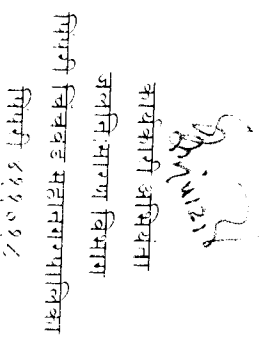 कार्यकारी अभियंता
जलनि:सारण विभाग
पिंपरी चिंचवड महानगरपालिका
पिंपरी ४११०१८